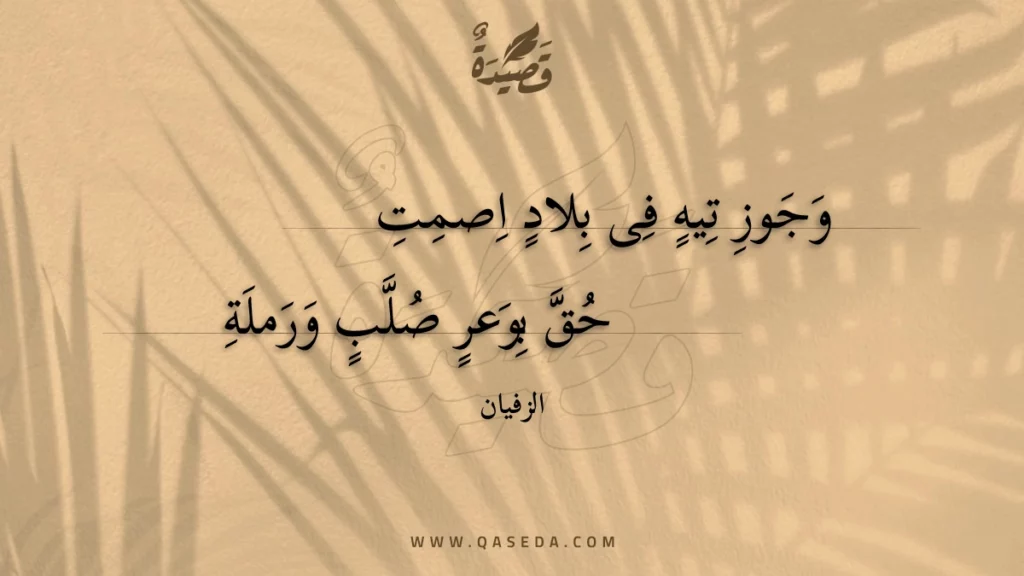 قَصِيدَةٌ
وَجَوزِ تِيهٍ فِى بِلادٍ اِصمِتِ
حُقَّ بِوَعرٍ صُلَّبٍ وَرَملَةِ
الزفيان
WWW.QASEDA.COM